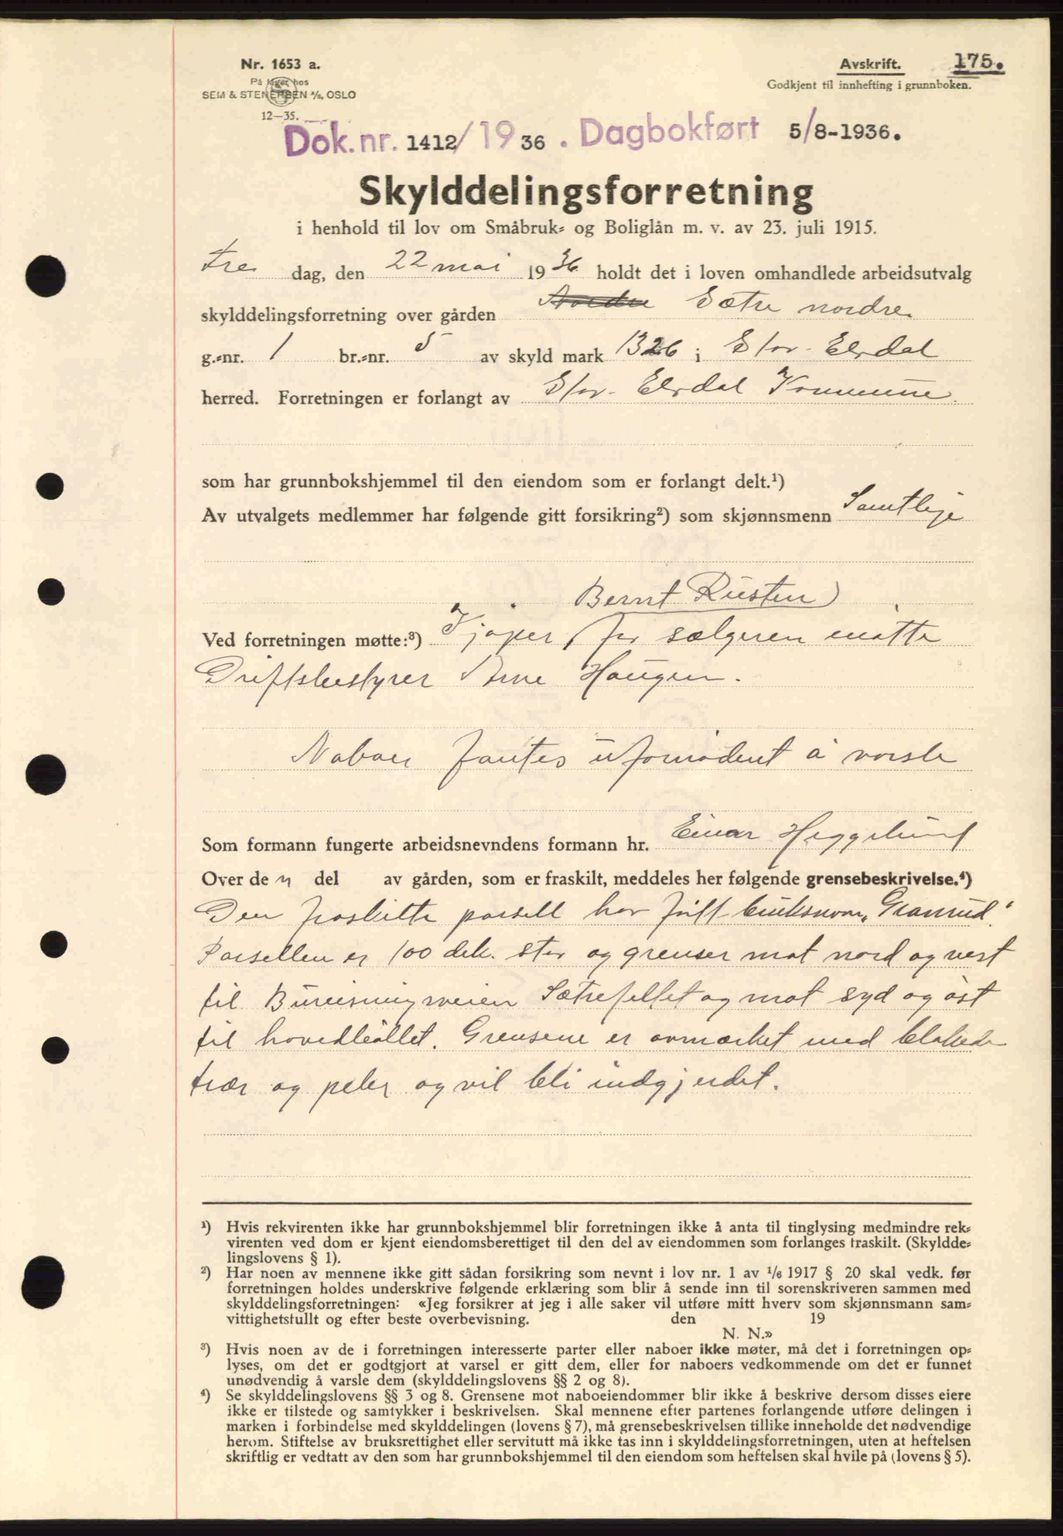 Nr. 1653 a.
På lager hos
SEM & STENERSEN A/S, OSLO
12—35.
Avskrift. 175.
Godkjent til innhefting i grunnboken.
Dok.nr. 1412/1936. Dagbokført 5/8-1936.
Skylddelingsforretning
i henhold til lov om Småbruk= og Boliglån m. v. av 23. juli 1915.
fre dag, den 22 mai 1936 holdt det i loven omhandlede arbeidsutvalg
skylddelingsforretning over gården Nordre Sætre nordre
g.=nr. 1 br.=nr. 5 av skyld mark 1326 i Stor-Elvdal
herred. Forretningen er forlangt av Stor-Elvdal Kommune.
som har grunnbokshjemmel til den eiendom som er forlangt delt.¹)
Av utvalgets medlemmer har følgende gitt forsikring²) som skjønnsmenn Samtlige
Bernt Rusten)
Ved forretningen møtte:³) Kjøper, for sælgeren møtte
Driftsbestyrer Arne Haugen.
Naboer fantes ufornødent å varsle
Som formann fungerte arbeidsnevndens formann hr. Einar Heggelund
Over de n del av gården, som er fraskilt, meddeles her følgende grensebeskrivelse.⁴)
Den fraskilte parsell har fått bruksnavn „Granrud".
Parsellen er 100 dek. stor og grenser mot nord og vest
til Bureisningsveien Sætrefeltet og mot syd og øst
til hovedbøllet. Grensene er avmerket med blekede
trær og peler og vil bli indgjerdet.
¹) Hvis rekvirenten ikke har grunnbokshjemmel blir forretningen ikke å anta til tinglysing medmindre rek=
virenten ved dom er kjent eiendomsberettiget til den del av eiendommen som forlanges fraskilt. (Skyldde=
lingslovens § 1).
²) Har noen av mennene ikke gitt sådan forsikring som nevnt i lov nr. 1 av 1/6 1917 § 20 skal vedk. før
forretningen holdes underskrive følgende erklæring som blir å sende inn til sorenskriveren sammen med
skylddelingsforretningen: «Jeg forsikrer at jeg i alle saker vil utføre mitt hverv som skjønnsmann sam=
vittighetsfullt og efter beste overbevisning. den 19
N. N.»
³) Hvis noen av de i forretningen interesserte parter eller naboer ikke møter, må det i forretningen op=
lyses, om det er godtgjort at varsel er gitt dem, eller for naboers vedkommende om det er funnet
unødvendig å varsle dem (skylddelingslovens §§ 2 og 8).
⁴) Se skylddelingslovens §§ 3 og 8. Grensene mot naboeiendommer blir ikke å beskrive dersom disses eiere
ikke er tilstede og samtykker i beskrivelsen. Skal mennene efter partenes forlangende utføre delingen i
marken i forbindelse med skylddelingen (lovens § 7), må grensebeskrivelsen tillike inneholde det nødvendige
herom. Stiftelse av bruksrettighet eller servitutt må ikke tas inn i skylddelingsforretningen, uten at heftelsen
skriftlig er vedtatt av den som har grunnbokshjemmel til den eiendom som heftelsen skal hvile på (lovens § 5).